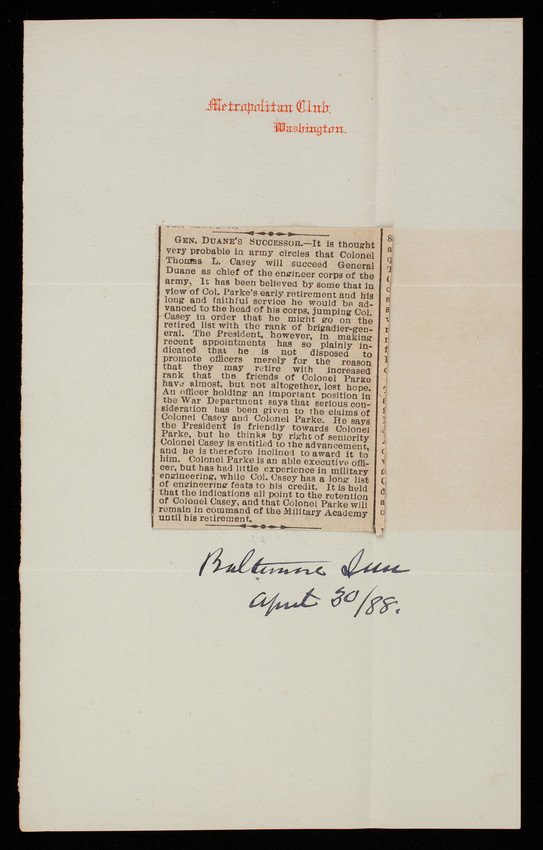 Metropolitan Club,
Washington.
GEN. DUANE'S SUCCESSOR.—It is thought
very probable in army circles that Colonel
Thomas L. Casey will succeed General
Duane as chief of the engineer corps of the
army. It has been believed by some that in
view of Col. Parke's early retirement and his
long and faithful service he would be ad-
vanced to the head of his corps, jumping Col.
Casey in order that he might go on the
retired list with the rank of brigadier-gen-
eral. The President, however, in making
recent appointments has so plainly in-
dicated that he is not disposed to
promote officers merely for the reason
that they may retire with increased
rank that the friends of Colonel Parke
have almost, but not altogether, lost hope.
An officer holding an important position in
the War Department says that serious con-
sideration has been given to the claims of
Colonel Casey and Colonel Parke. He says
the President is friendly towards Colonel
Parke, but he thinks by right of seniority
Colonel Casey is entitled to the advancement,
and he is therefore inclined to award it to
him. Colonel Parke is an able executive offi-
cer, but has had little experience in military
engineering, while Col. Casey has a long list
of engineering feats to his credit. It is held
that the indications all point to the retention
of Colonel Casey, and that Colonel Parke will
remain in command of the Military Academy
until his retirement.
Baltimore Sun
April 30/88.